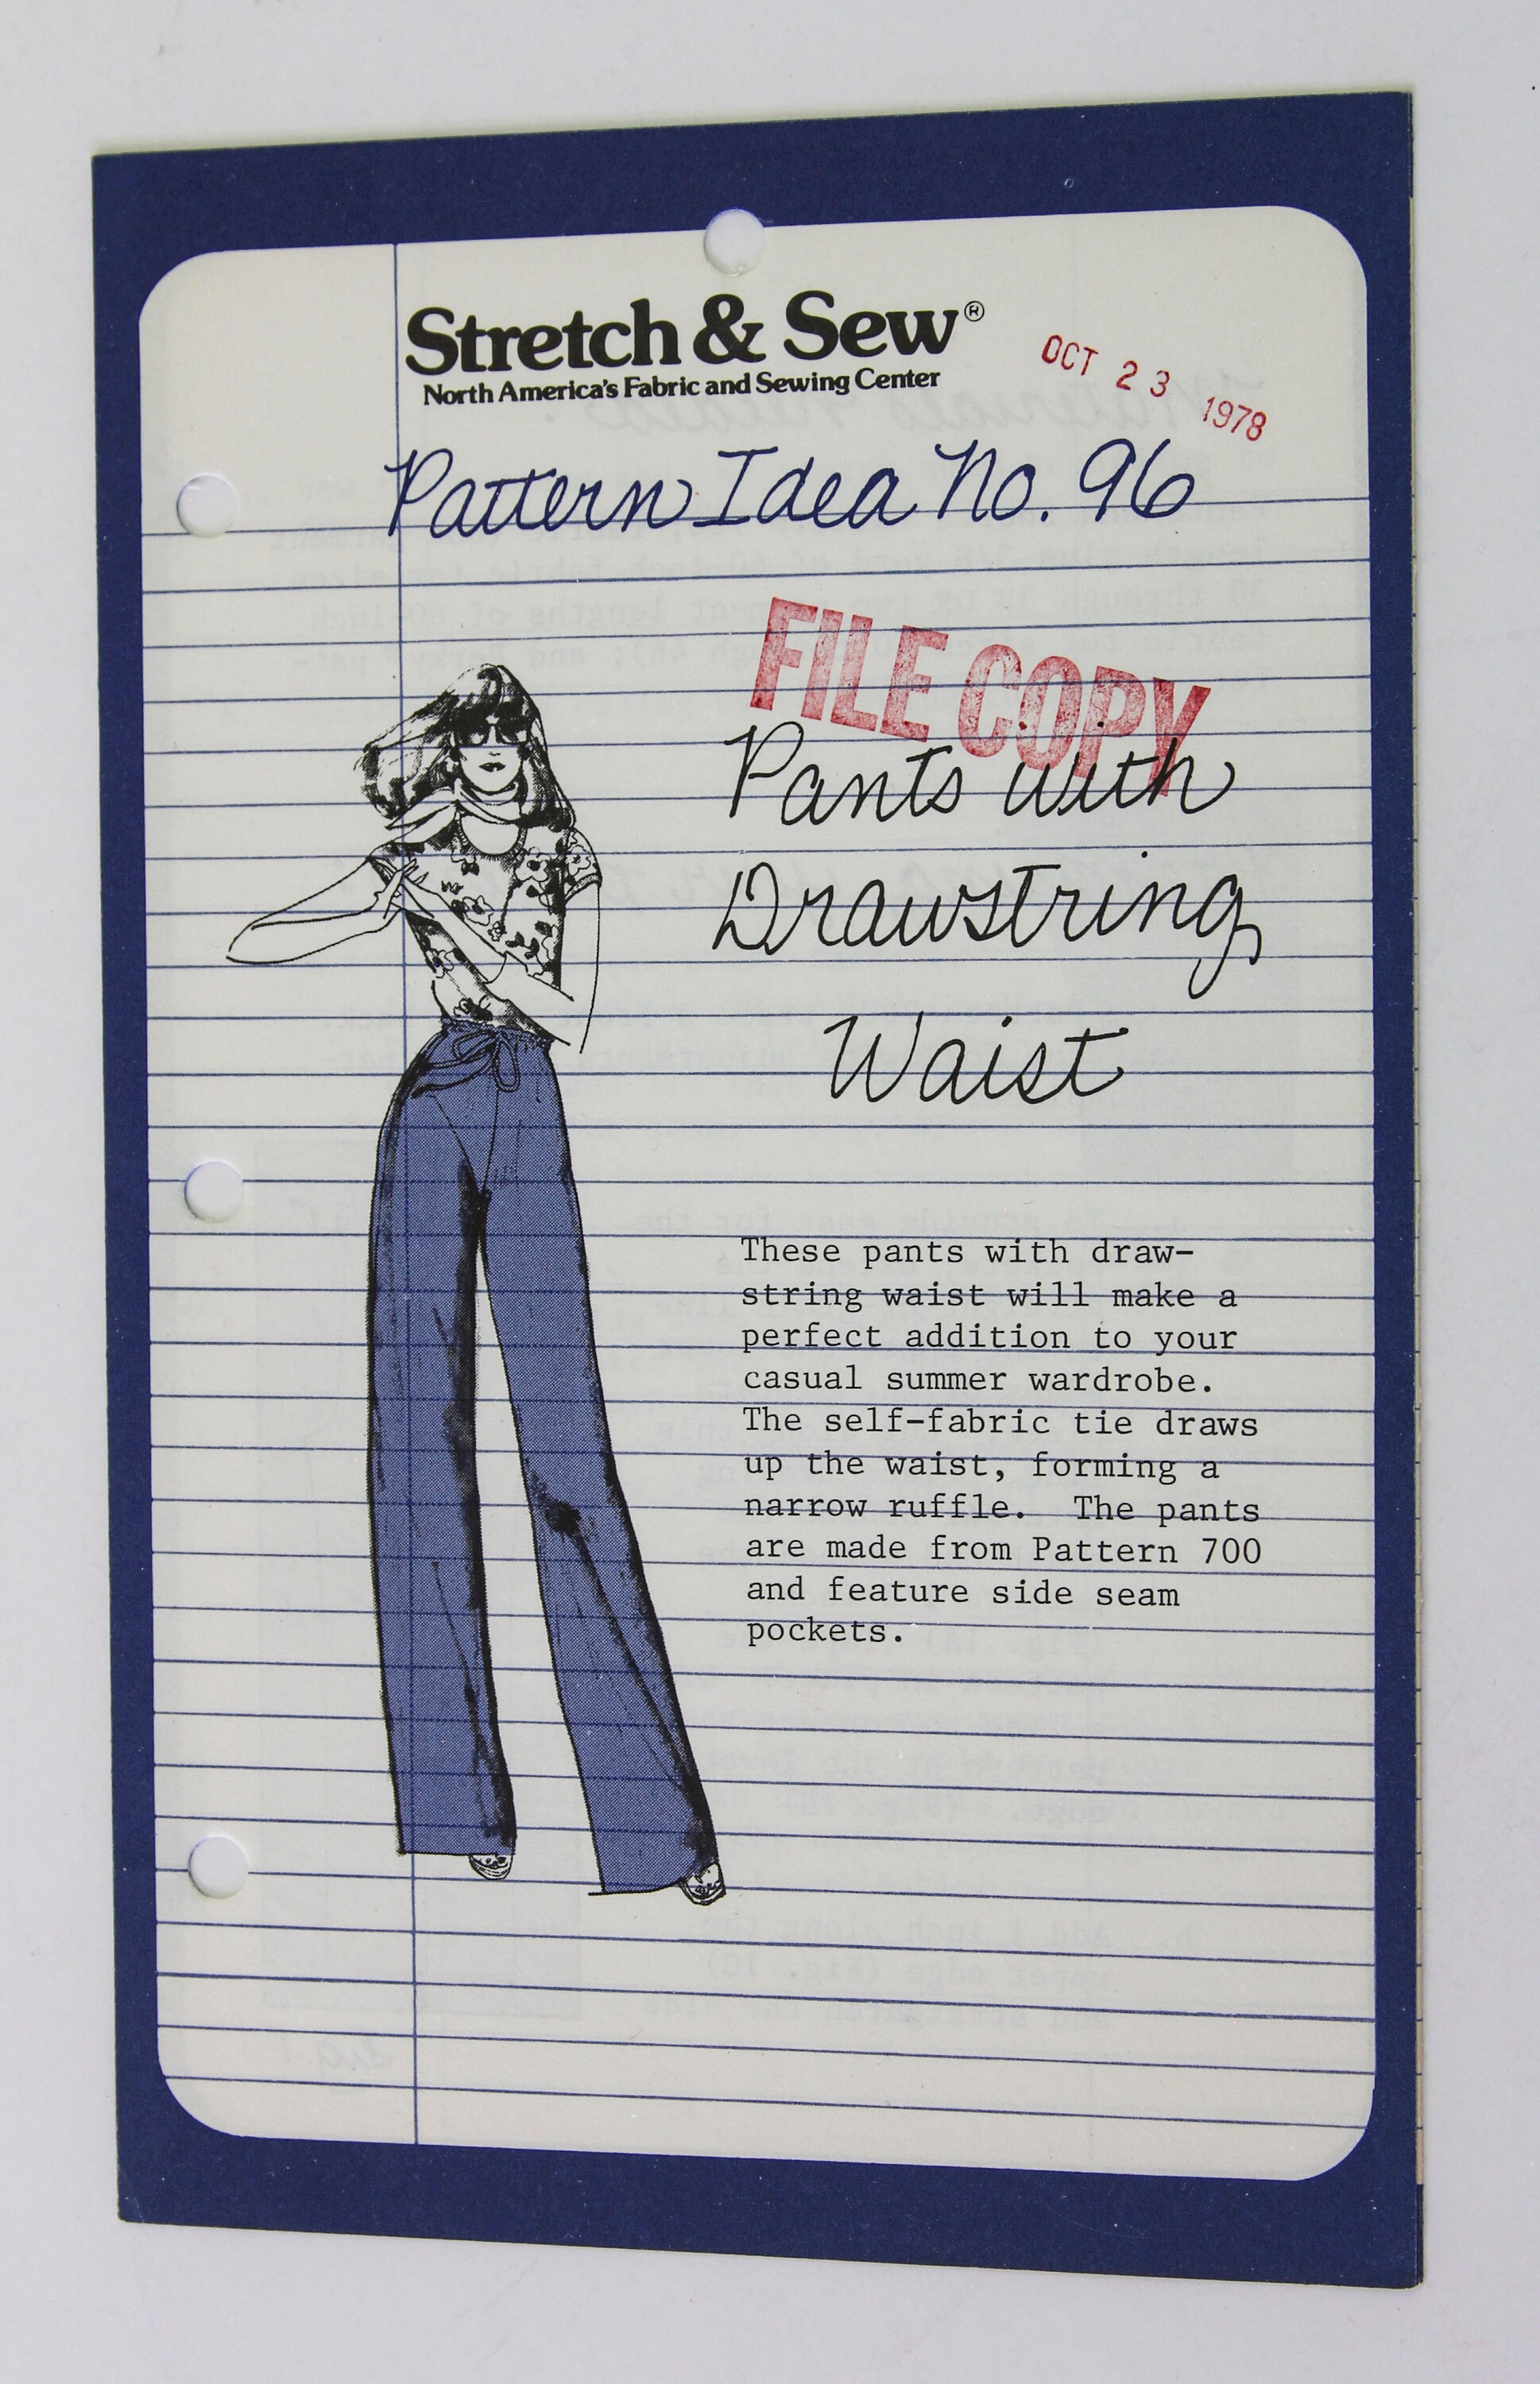 Stretch & Sew®
North America's Fabric and Sewing Center
OCT 23 1978
Pattern Idea No. 96
FILE COPY
Pants with
Drawstring
Waist
These pants with draw-
string waist will make a
perfect addition to your
casual summer wardrobe.
The self-fabric tie draws
up the waist, forming a
narrow ruffle. The pants
are made from Pattern 700
and feature side seam
pockets.